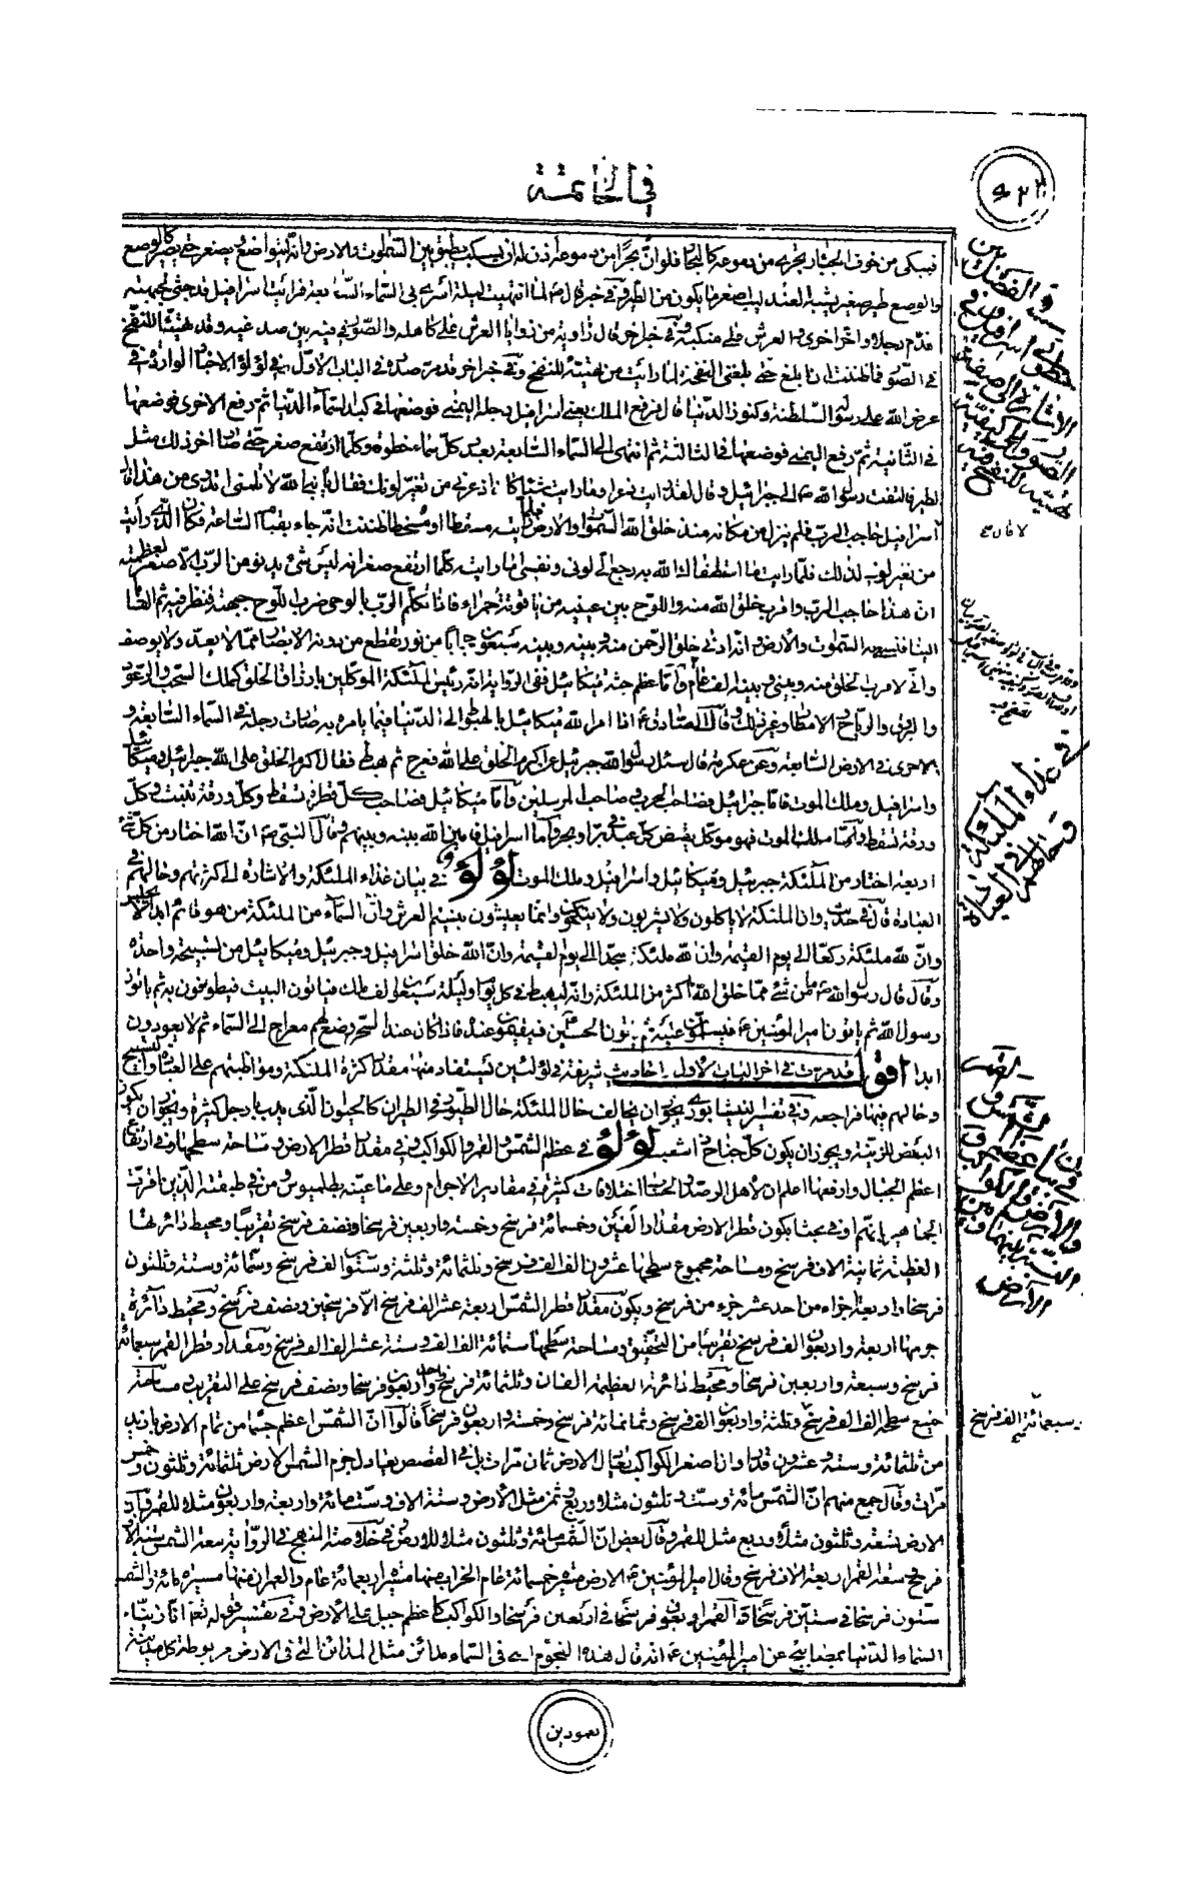 في الخاتمة
فيبكي من خوف الجبار يجري من دموعه كالبحار فلو ان بحرا من دموعه اذن له ان يسكب لطبق بين السموات والارض وانه ليتواضع ويصغر حتى يصير كالوصع
والوصع طير صغير يشبه العندليب اصغر ما يكون من الطير وفي خبر قال لما انتهيت ليلة اسري بي الى السماء السابعة فرأيت اسرافيل قد حنى جبهته
قدم رجلا واخر اخرى والعرش على منكبيه وفي خبر اخر قال زاوية من زوايا العرش على كاهله والصور في فيه بين صدغيه وقد تهيئا للنفخ
في الصور فما ظننت ان ابلغ حتى يبلغني النفخة لما رايت من تهيئه للنفخ وفي خبر اخر قد مر صدره في الباب الاول في لؤلؤ الاخبار الواردة في
عرض الله على رسوله السلطنة وكنوز الدنيا قال فرفع الملك يعني اسرافيل رجله اليمنى فوضعها في كبد السماء الدنيا ثم رفع الاخرى فوضعها
في الثانية ثم رفع اليمنى فوضعها في الثالثة ثم انتهى الى السماء السابعة بعد كل سماء خطوة وكلما ارتفع صغر حتى صار اخر ذلك مثل
الطير فالتفت رسول الله الى جبرائيل وقال لقد رايت ذعرا وما رايت شيئا كان اذعر لي من تغير لونك فقال يا نبي الله لا تلمني اتدري من هذا قال
اسرافيل حاجب الرب فلم ينزل من مكانه منذ خلق الله السموات والارض فلما رايته منحطا ظننت انه جاء بقيام الساعة فكان الذي رأيت
من تغير لوني لذلك فلما رايت ما اصطفاك الله به رجع الي لوني ونفسي اما رايته كلما ارتفع صغر انه ليس شئ يدنو من الرب الا صغر لعظمته
ان هذا حاجب الرب واقرب خلق الله منه واللوح بين عينيه من ياقوتة حمراء فاذا تكلم الرب بالوحي ضرب اللوح جبهته فنظر فيه ثم القاه
الينا فنسعى به في السموات والارض انه ادنى خلق الرحمن منه وبينه وبينه سبعون حجابا من نور تقطع من دونه الابصار مما لا يعد ولا يوصف
واني لاقرب الخلق منه وبيني وبينه الف عام واما عظم جثة ميكائيل ففي الرواية انه رئيس الملئكة الموكلين بارزاق الخلق كملك السحب والرعود
والبرق والرياح والامطار وغير ذلك وقال الصادق ع اذا امر الله ميكائيل بالهبوط الى الدنيا فيما يامره به صارت رجله في السماء السابعة و
الاخرى في الارض السابعة وعن عكرمة قال سئل رسول الله جبرئيل عن اكرم الخلق على الله فعرج ثم هبط فقال اكرم الخلق على الله جبرائيل وميكائيل
واسرافيل وملك الموت فاما جبرائيل فصاحب الحرب وصاحب المرسلين واما ميكائيل فصاحب كل قطرة تسقط وكل ورقة تنبت وكل
ورقة تسقط واما ملك الموت فهو موكل بقبض كل عبد في بر او بحر واما اسرافيل فامين الله بينه وبينهم وقال النبي ان الله اختار من كل شئ
اربعة اختار من الملئكة جبرئيل وميكائيل واسرافيل وملك الموت لؤلؤ في بيان غذاء الملئكة والاشارة الى كثرتهم وحالهم في
العبادة قال في حديث وان الملئكة لا ياكلون ولا يشربون ولا ينكحون وانما يعيشون بنسيم العرش وان السماء من الملئكة من هو قائم ابدا لا يجلس
وان لله ملئكة ركعا الى يوم القيمة وان لله ملئكة سجدا الى يوم القيمة وان الله خلق اسرافيل وجبرئيل وميكائيل من تسبيحة واحدة
وقال قال رسول الله ما من شئ مما خلق الله اكثر من الملئكة وانه ليهبط في كل يوم او ليلة سبعون الف ملك فياتون البيت فيطوفون به ثم ياتون
رسول الله ثم ياتون امير المؤمنين ع فيسلمون عليه ثم ياتون الحسين فيقيمون عنده فاذا كان عند السحر وضع لهم معراج الى السماء ثم لا يعودون
ابدا اقول قد مرت في اخر الباب الاول احاديث شريفة في لؤلئين تستفاد منها مقدار كثرة الملئكة ومواظبتهم على العبادة والتسبيح
وحالهم فيها فراجعه وفي تفسير النيشابوري يجوز ان يخالف حال الملئكة حال الطيور في الطيران كالحيوان الذي يدب بارجل كثيرة ويجوز ان يكون
البعض للزينة ويجوز ان يكون كل جناح ذا شعب لؤلؤ في عظم الشمس والقمر والكواكب وفي مقدار قطر الارض ومساحة سطحها وفي ارتفاع
اعظم الجبال وارفعها اعلم ان لاهل الرصد والحساب اختلافات كثيرة في مقادير الاجرام وعلى ما عينه بطلميوس ومن في طبقته الذين اقرت
الجماهير بانهم اوفى بحثا يكون قطر الارض مقدار الفين وخمسمائة فرسخ وخمسة واربعين فرسخا ونصف فرسخ تقريبا ومحيط دائرتها
العظيمة ثمانية الاف فرسخ ومساحة مجموع سطحها عشرون الف الف فرسخ وثلثمائة وثلثة وستون الف فرسخ وستمائة وستة وثلثون
فرسخا واربعة اجزاء من احد عشر جزء من فرسخ ويكون مقدار قطر الشمس اربعة عشر الف فرسخ الا فرسخين ونصف فرسخ ومحيط دائرة
جرمها اربعة واربعون الف فرسخ تقريبا من التحقيق ومساحة سطحها ستمائة الف الف وستة عشر الف الف فرسخ ومقدار قطر القمر سبعمائة
فرسخ وسبعة واربعين فرسخا ومحيط دائرته العظيمة الفان وثلثمائة فرسخ واحد واربعون فرسخا ونصف فرسخ على التقريب ومساحة
جميع سطحه الف الف فرسخ وثلثة واربعون الف فرسخ وثمانمائة فرسخ وخمسة واربعون فرسخا قالوا ان الشمس اعظم جثما من تمام الارض بازيد
من ثلثمائة وستة وعشرون قدرا وان اصغر الكواكب يعادل الارض ثمان مرات بل في القصص يعادل جرم الشمس الارض ثلثمائة وثلثون وخمس
مرات وقال جمع منهم ان الشمس مائة وست وثلثون مثلا وربع وثمن مثل الارض وستة الاف وستمائة واربعة واربعون مثلا للقمر وان
الارض تسعة وثلثون مثلا وربع مثل للقمر وقال بعض ان الشمس مائة وثلثون مثلا للارض وفي خلاصة المنهج في الرواية سعة الشمس ستة الاف
فرسخ وسعة القمر اربعة الاف فرسخ وقال امير المؤمنين ع الارض مسيرة خمسمائة عام الخراب منها مسيرة اربعمائة عام والعمران منها مسيرة مائة والشمس
ستون فرسخا في ستين فرسخا والقمر اربعون فرسخا في اربعين فرسخا والكواكب كاعظم جبل على الارض وفي تفسير قوله تعالى انا زينا
السماء الدنيا بمصابيح عن امير المؤمنين ع انه قال هذه النجوم التي في السماء مدائن مثل المدائن التي في الارض مربوطة كل مدينة
بعمودين
في غذاء الملئكة
وحالهم في العبادة
سبعمائة الف فرسخ